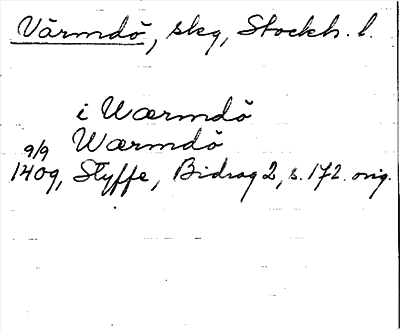 Värmdö, skg, Stockh. l.
i Wærmdö
Wærmdö
9/9
1409, Styffe, Bidrag 2, s. 172. orig.